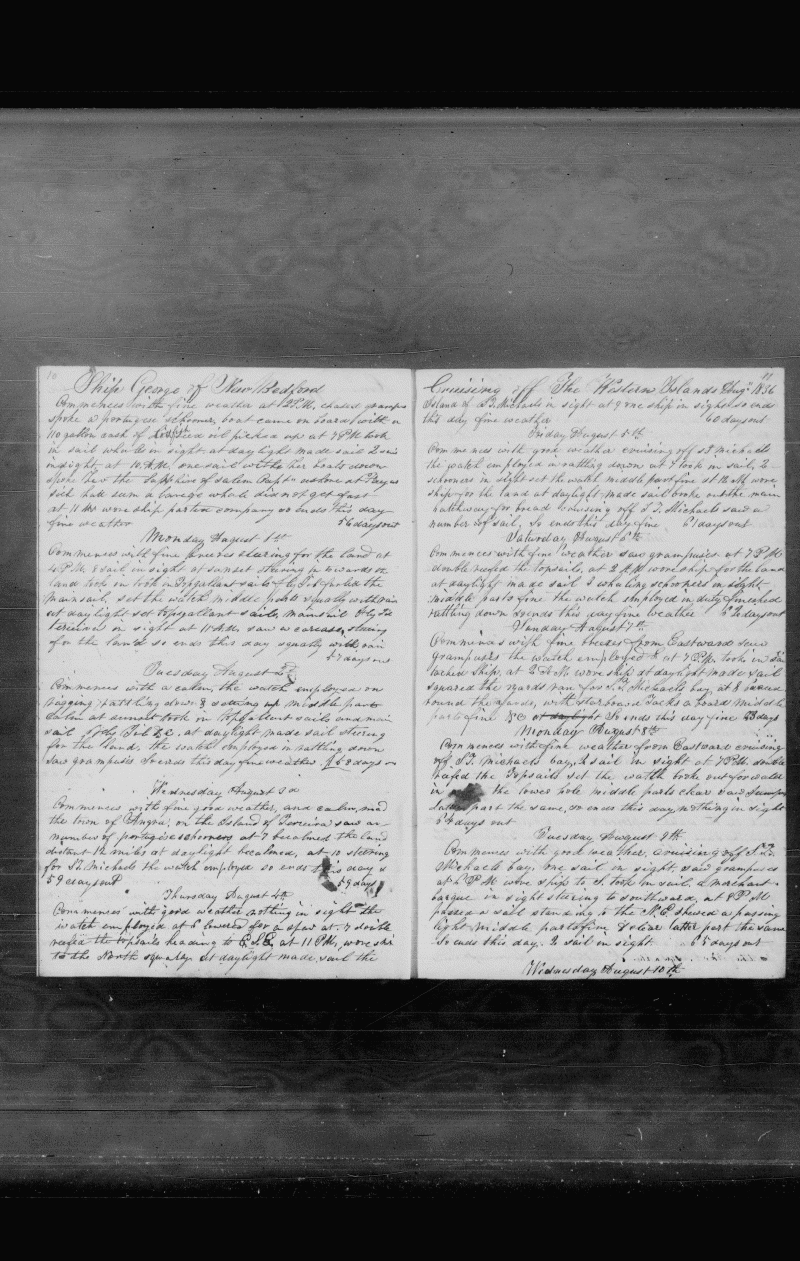 10
Ship George of New Bedford
Commences with fine weather at 2 P.M. chased grampus
spoke a portugese schooner, boat came on board with a
110 gallon cask of oil picked up at 7 P.M. took
in sail whale in sight at daylight made sail 2 sail
insight, at 10 A.M. one sail with her boats down
spoke her the Sapphire of Salem Capt
sick had sum a large whale did not get fast
at 11 AM wore ship parten company so ends this day
fine weather 56 days out
Monday August 1st
Commences with fine breeses stearing for the land at
4 P M 8 sail in sight at sunset stearing in towards the
land took in Topgallant sails fly Jib furled the
mainsail, set the watch middle part squally with rain
at daylight set topgallant sails, mainsail & fly Jib
Terceira in sight at 11 A.M. saw a carcase, stearing
for the land so ends this day squally with rain
57 days out
Tuesday August 2d
Commences with a calm, the watch employed on
rigging rattling down & setting up middle part
calm at sunset took in Topgallant sails and main
sail & fly Jib &c. at daylight made sail steering
for the land, the watch employed in rattling down
saw grampuses So ends this day fine weather. 58 days
Wednesday August 3d
Commences with fine good weather, and calm, and
the town of Angra, on the Island of Terceira saw a
number of portugise schooners at 7 becalmed the land
distant 12 miles at daylight becalmed, at 10 steering
for St. Michaels the watch employed so ends this day
59 days out 59 days
Thursday August 4th
Commences with good weather nothing in sight the
watch employed at 6 lowered for a spar at 7 double
reefed the topsails heading to E.S.E. at 11 P.M, wore ship
to the North squaly at daylight made, sail the
11
Cruising off The Western Islands Augt 1856
Island of St. Michaels in sight at 9 one ship in sight so ends
this day fine weather 60 days out
Friday August 5th
Commences with good weather cruising off St michaels
the watch employed in rattling down at 7 took in sail, 2
schooners in sight set the watch middle part fine at 12 AM wore
ship for the land at daylight made sail broke out the main
hatchway for bread cruising off St. Michaels saw a
number of sail, So ends this day fine 61 days out
Saturday August 6th
Commences with fine weather saw grampuses at 7 P M
double reefed the topsails, at 2 A.M. wore ship for the land
at daylight made sail 3 whaling schooners in sight
middle parts fine the watch employed in duty finished
rattling down So ends this day fine weather 62 days out
Sunday August 7th
Commences with fine breeses from Eastward saw
grampuses the watch employed at 7 P.M. took in Sail
tacked ship, at 2 A M wore ship at daylight made sail
squared the yards ran for St Michaels bay, at 8 braced
round the yards, with starboard Tacks aboard Middle
part fine &c at daylight So ends this day fine 63 days
Monday August 8th
Commences with fine weather from Eastward cruising
off St. Michaels bay, sail in sight at 7 P.M. double
reefed the Topsails set the watch broke out for water
in the lower hole middle parts clear saw
part the same, so ends this day, nothing in sight
64 days out
Tuesday August 9th
Commences with good weather, cruising off St.
Michaels bay, one sail in sight, saw grampuses
at 6 P M wore ship to S. took in sail, a merchant
barque in sight steering to southward, at 8 P M
passed a sail standing to the N.E. shewed a passing
light middle parts fine & clear latter part the same
So ends this day. 2 sail in sight 65 days out
Wednesday August 10th